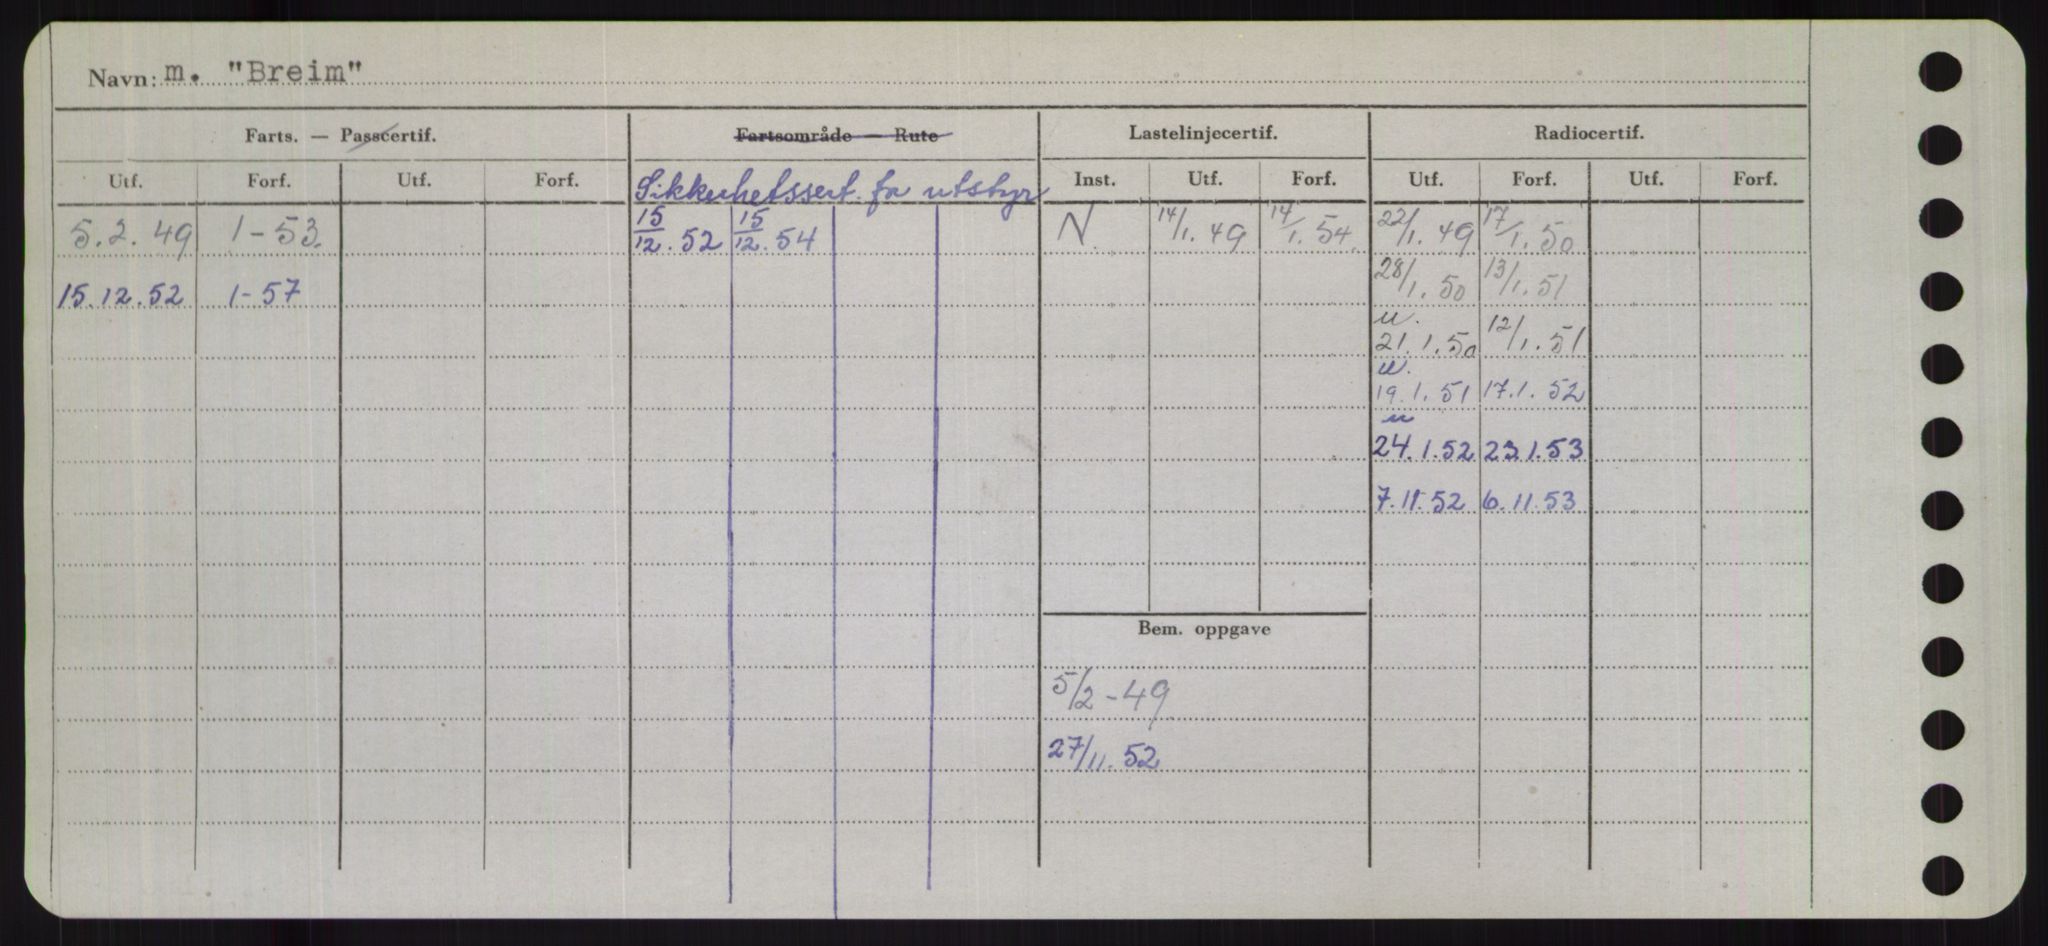 Navn: m. "Breim"
Farts. — Passcertif. Fartsområde — Rute Lastelinjecertif. Radiocertif.
Utf. Forf. Utf. Forf. Sikkerhetssert. for utstyr Inst. Utf. Forf. Utf. Forf. Utf. Forf.
5.2.49 1-53. 15/12.52 15/12.54 N. 14/1.49 14/1.54. 22/1.49 17/1.50
15.12.52 1-57 28/1.50 13/1.51
u.
21.1.50 12/1.51
u.
19.1.51 17.1.52
u
24.1.52 23.1.53
7.11.52 6.11.53
Bem. oppgave
5/2-49
27/11.52